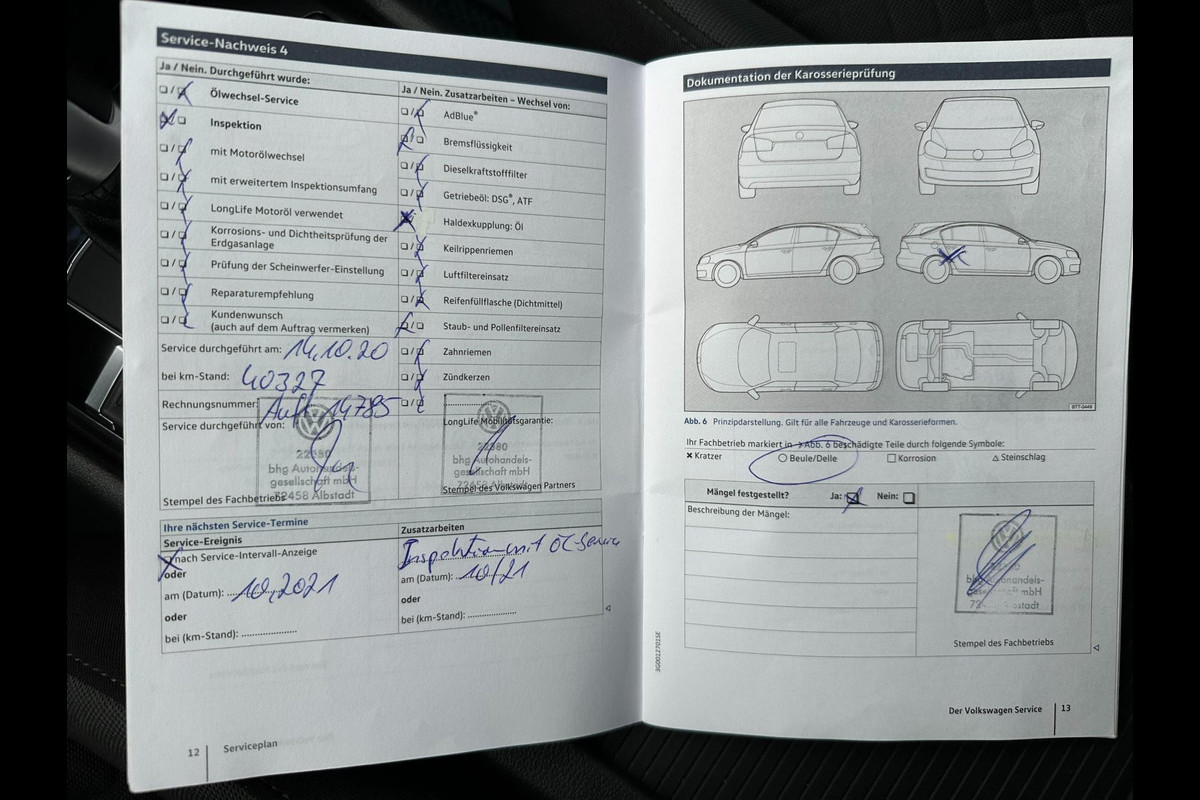 Service-Nachweis 4
Ja / Nein. Durchgeführt wurde:
Ölwechsel-Service
Inspektion
mit Motorölwechsel
mit erweitertem Inspektionsumfang
LongLife Motoröl verwendet
Korrosions- und Dichtheitsprüfung der
Erdgasanlage
Prüfung der Scheinwerfer-Einstellung
Reparaturempfehlung
Kundenwunsch
(auch auf dem Auftrag vermerken)
Service durchgeführt am: 14.10.20
bei km-Stand: 40327
Rechnungsnummer: Auft. 14785
Service durchgeführt von:
bhg Autohandels-
gesellschaft mbH
72458 Albstadt
Stempel des Fachbetriebs
Ja / Nein. Zusatzarbeiten – Wechsel von:
AdBlue®
Bremsflüssigkeit
Dieselkraftstofffilter
Getriebeöl: DSG®, ATF
Haldexkupplung: Öl
Keilrippenriemen
Luftfiltereinsatz
Reifenfüllflasche (Dichtmittel)
Staub- und Pollenfiltereinsatz
Zahnriemen
Zündkerzen
LongLife Mobilitätsgarantie:
bhg Autohandels-
gesellschaft mbH
72458 Albstadt
Stempel des Volkswagen Partners
Ihre nächsten Service-Termine
Service-Ereignis
nach Service-Intervall-Anzeige
oder
am (Datum): 10.2021
oder
bei (km-Stand):
Zusatzarbeiten
Inspektion mit ÖL-Service
am (Datum): 10/21
oder
bei (km-Stand):
12
Serviceplan
Dokumentation der Karosserieprüfung
BTT-0449
Abb. 6 Prinzipdarstellung. Gilt für alle Fahrzeuge und Karosserieformen.
Ihr Fachbetrieb markiert in → Abb. 6 beschädigte Teile durch folgende Symbole:
Kratzer
Beule/Delle
Korrosion
Steinschlag
Mängel festgestellt?
Ja:
Nein:
Beschreibung der Mängel:
bhg Autohandels-
mbH
Stempel des Fachbetriebs
3G0012701SE
Der Volkswagen Service
13